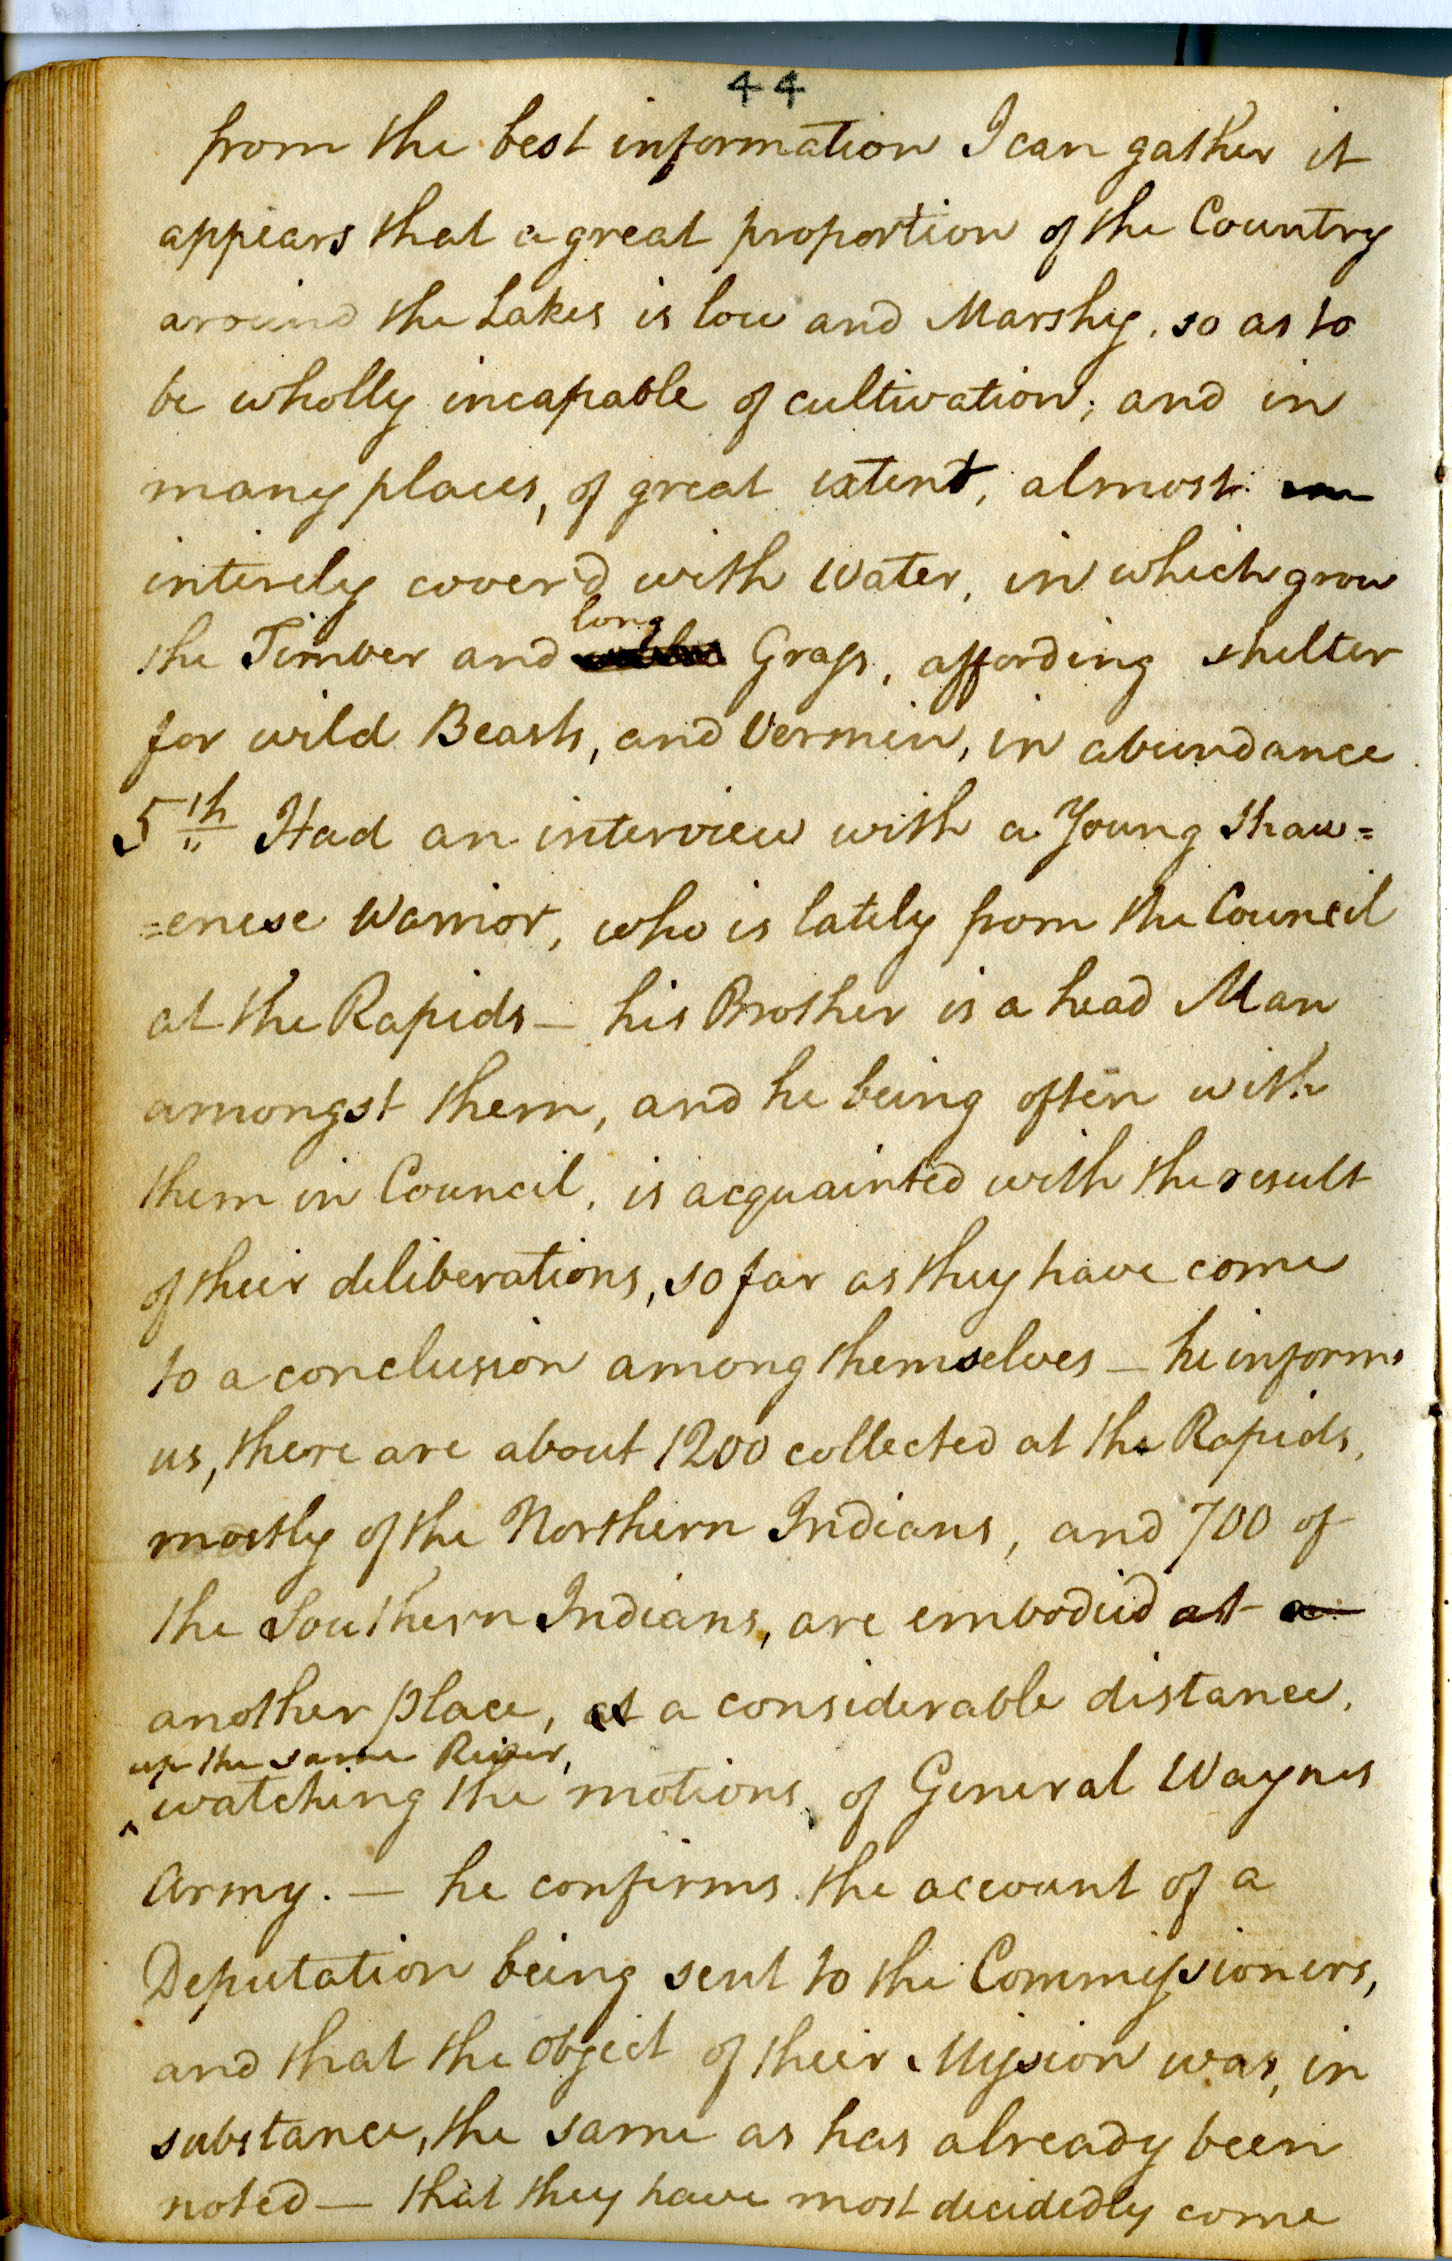 44
from the best information I can gather it
appears that a great proportion of the Country
around the Lakes is low and Marshy, so as to
be wholly incapable of cultivation; and in
many places, of great extent, almost
intirely cover'd with Water, in which grow
long
the Timber and Grass, affording shelter
for wild Beasts, and Vermin, in abundance
5th Had an interview with a Young Shaw=
=enese Warrior, who is lately from the Council
at the Rapids — his Brother is a head Man
amongst them, and he being often with
them in Council, is acquainted with the result
of their deliberations, so far as they have come
to a conclusion among themselves — he informs
us, there are about 1200 collected at the Rapids,
mostly of the Northern Indians, and 700 of
the Southern Indians, are embodied at a
another place, at a considerable distance,
up the same River,
^ watching the motions of General Waynes
Army. — he confirms the account of a
Deputation being sent to the Commissioners,
and that the object of their Mission was, in
substance, the same as has already been
noted — that they have most decidedly come